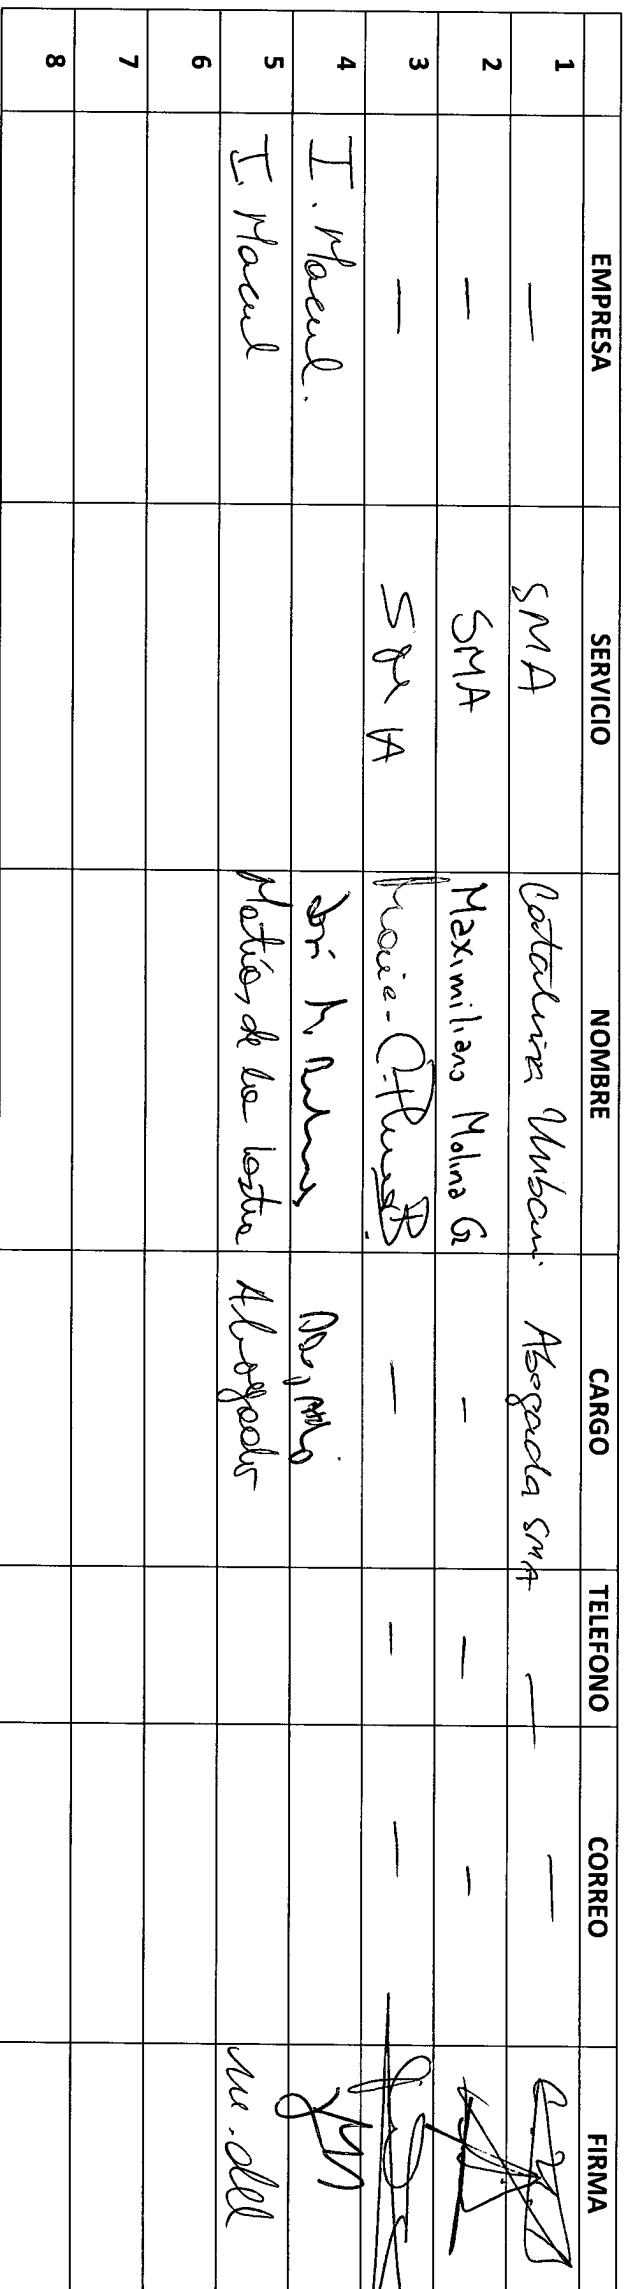 EMPRESA SERVICIO NOMBRE CARGO TELEFONO CORREO FIRMA
1 — SMA Catalina Uribarri Abogada SMA — —
2 — SMA Maximiliano Molina G — — —
3 — SMA — — —
4 I. Macul. José M.
5 I. Macul Matías de la Lastra Abogado
6
7
8